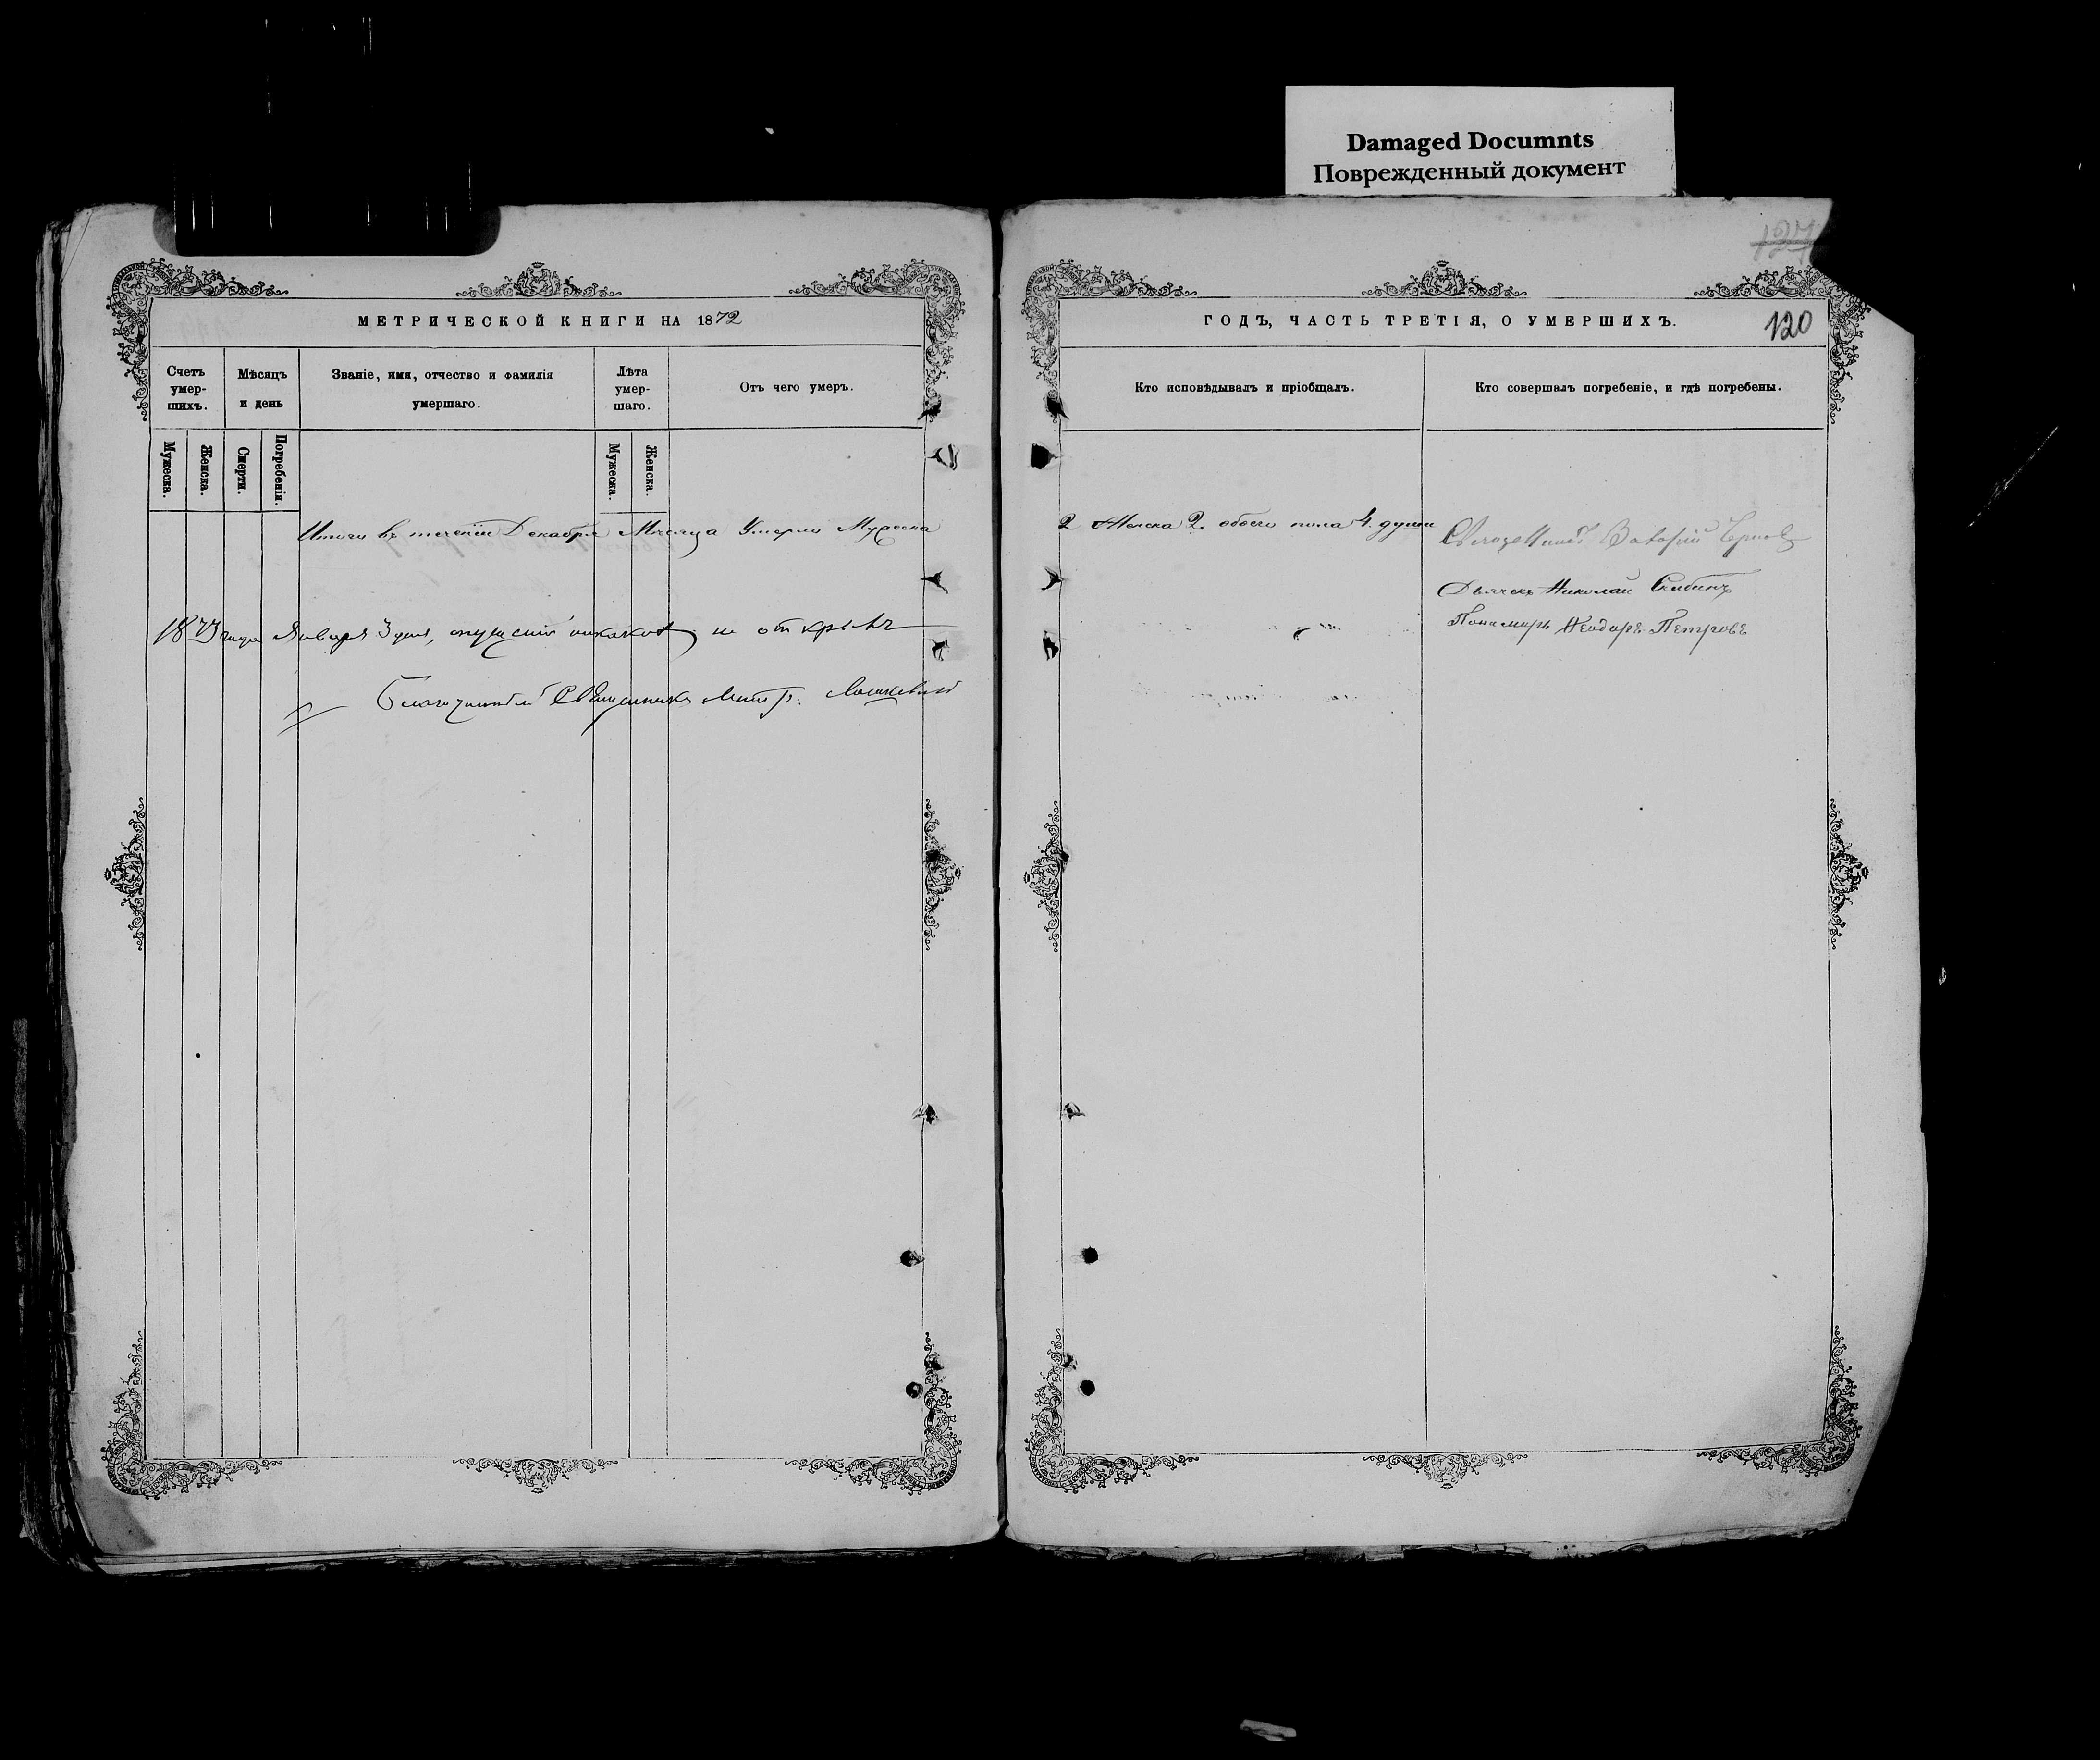 Damaged Documnts
Поврежденный документ
127
МЕТРИЧЕСКОЙ КНИГИ НА 1872
ГОДЪ, ЧАСТЬ ТРЕТІЯ, О УМЕРШИХЪ.
120
Счетъ умер-
шихъ.
Мѣсяцъ
и день
Званіе, имя, отчество и фамилія
умершаго.
Лѣта
умер-
шаго.
Отъ чего умеръ.
Кто исповѣдывалъ и пріобщалъ.
Кто совершалъ погребеніе, и гдѣ погребены.
Мужеска.
Женска.
Смерти.
Погребенія.
Мужеска.
Женска.
Итого въ теченіи Декабря Мѣсяца Умерло Мужеска
2 Женска 2. обоего пола 4 души
Дьячекъ Николай Скибинъ
Пономарь Ѳеодоръ Петровъ
1873 года Января 3 дня, опущеній никакихъ не открылъ
Благочинный Священникъ